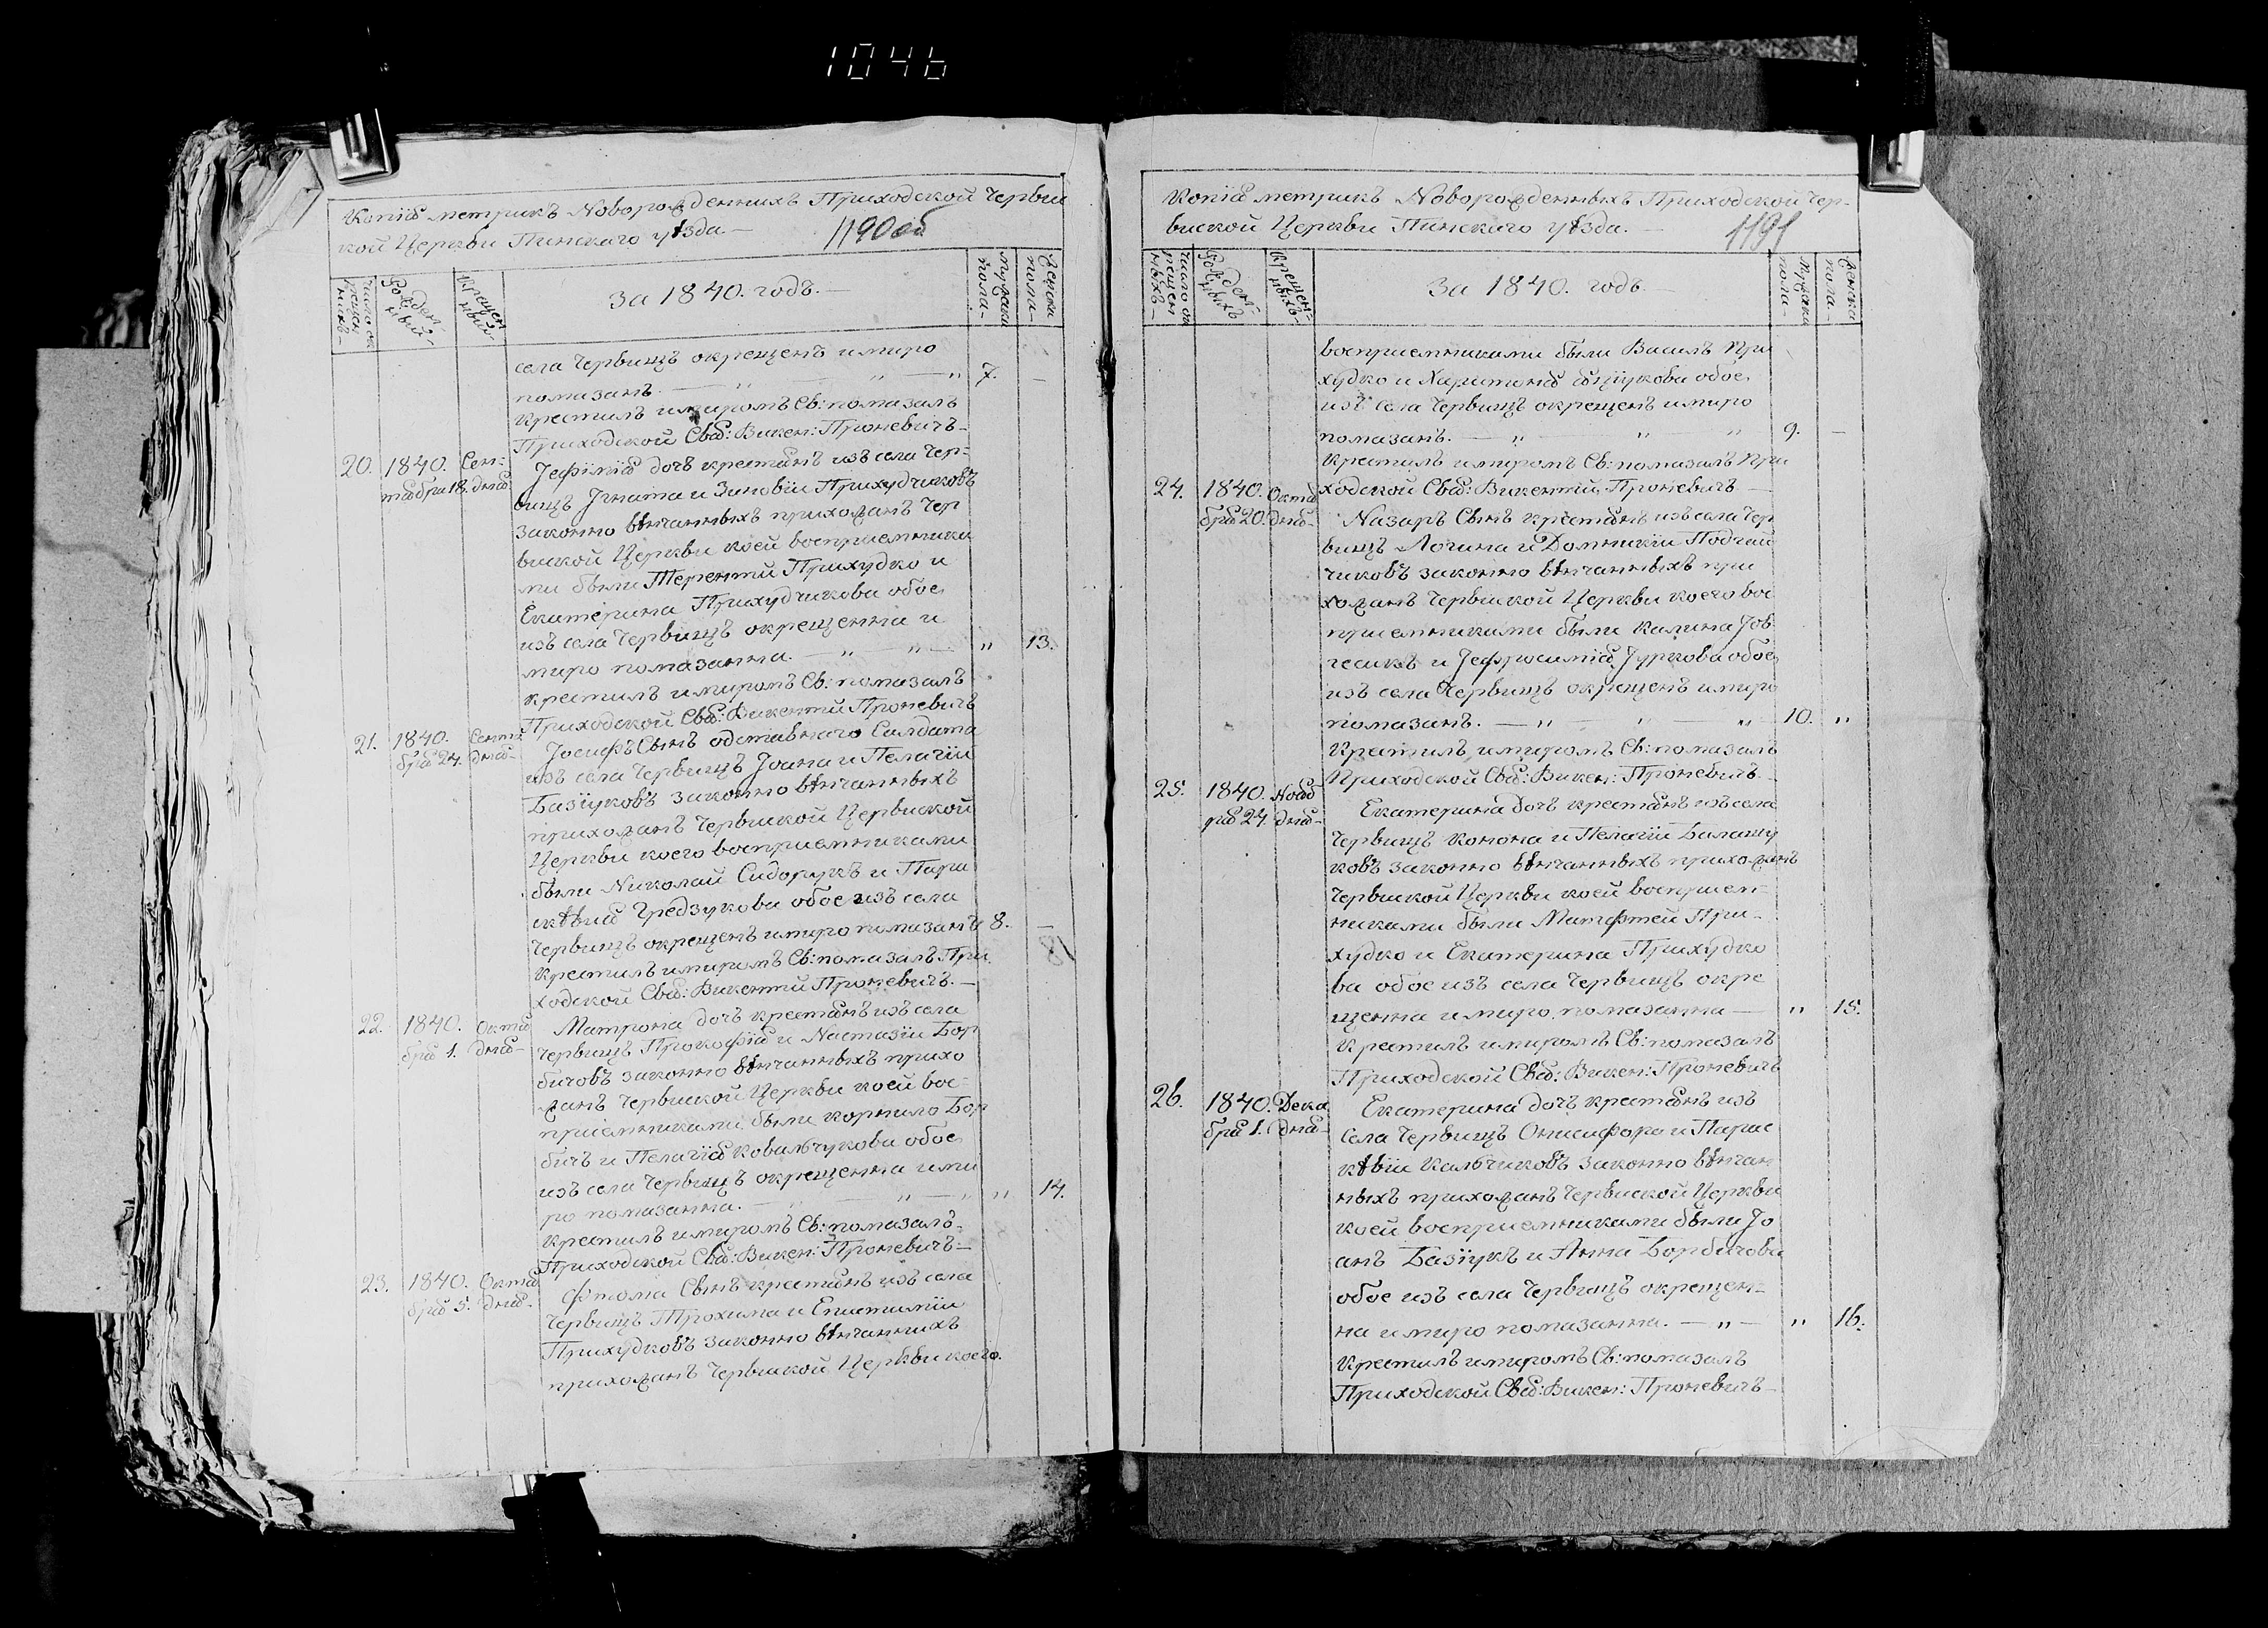 1046
Копія метрикъ Новорожденнихъ Приходской Черви
кой Церкви Пинскаго уѣзда.—
1190 об
число ок
рещен
нихъ—
Рожден-
ный-
Крещен
ный-
за 1840. годъ.—
мужска
пола-
женска
пола-
села Червищъ окрещенъ и миро
помазанъ. — „ — „ — „ 7. —
Крестилъ и миромъ Св: помазалъ
Приходской Свя: Викен: Проневичъ-
20. 1840. Сен-
тября 18. дня
Јефимія дочъ крестянъ изъ села Чер-
вищъ Јгната и Зиновіи Прихудчиковъ
законно вѣнчанныхъ прихожанъ Чер
виской Церкви коей восприемника
ми были Терентій Прихудко и
Екатерина Прихудчикова обое
изъ села Червищъ окрещенна и
миро помазанна. — „ — „ — „ 13.
Крестилъ и миромъ Св: помазалъ
Приходской Свя: Викентій Проневичъ
21. 1840. Сентя
бря 24. дня-
Јосифъ Сынъ одставнаго Салдата
изъ села Червищъ Јоана и Пелагіи
Базіуковъ законно вѣнчанныхъ
прихожанъ Червиской Цервиской
Церкви коего восприемниками
были Николай Сидорукъ и Пара
скѣвія Гредзукова обое изъ села
Червищъ окрещенъ и миро помазанъ 8. —
Крестилъ и миромъ Св: помазалъ При
ходской Свя: Викентій Проневичъ.—
22. 1840. Октя
бря 1. дня-
Матрона дочъ крестянъ изъ села
Червищъ Прокофія и Настазіи Бор
бичовъ законно вѣнчанныхъ прихо
жанъ Червиской Церкви коей вос-
приемниками были Корнило Бор
бичъ и Пелагія Ковальчукова обое
изъ села Червищъ окрещенна и ми
ро помазанна. — „ — „ „ 14.
Крестилъ и миромъ Св: помазалъ-
Приходской Свя: Викен: Проневичъ-
23. 1840. Октя
бря 5. дня-
Фтома Сынъ крестянъ изъ села
Червищъ Трохима и Епистиміи
Прихудковъ законно вѣнчаннихъ
прихожанъ Червиской Церкви коего.
Копія метрикъ Новорожденныхъ Приходской Чер-
виской Церкви Пинскаго уѣзда. —
1191
число ок
рещен
ныхъ-
Рожден-
ныхъ
Крещен-
ныхъ-
За 1840. годъ —
Мужска
пола-
женска
пола-
восприемниками были Василъ При
худко и Харитоня обое
изъ села Червищъ окрещенъ и миро
помазанъ. — „ — „ — „ 9. —
Крестилъ и миромъ Св: помазалъ При
ходской Свя: Викентій Проневичъ —
24. 1840. Октя
бря 20. дня-
Назаръ Сынъ крестянъ изъ села Чер
вищъ Логина и Домникіи Подгай
чиковъ законно вѣнчанныхъ при
хожанъ Червиской Церкви коего вос
приемниками были Калина Јов
чесикъ и Јефросимія Јуркова обое
изъ села Червищъ окрещенъ и миро
помазанъ. — „ — „ — „ — 10. „
Крестилъ и миромъ Св: помазалъ
Приходской Свя: Викен: Проневичъ-
25. 1840. Нояб
ря 24. дня-
Екатерина дочъ крестянъ изъ села
Червищъ Конона и Пелагіи Балашу
ковъ законно вѣнчанныхъ прихожанъ
Червиской Церкви коей восприем-
никами были Матфтей При-
худко и Екатерина Прихудко
ва обое изъ села Червищъ окре
щенна и миро помазанна — „ 15.
Крестилъ и миромъ Св: помазалъ
Приходской Свя: Викен: Проневичъ
26. 1840. Дека
бря 1. дня-
Екатерина дочъ крестянъ изъ
села Червищъ Онисифора и Парас
кѣвіи Кальчиковъ законно вѣнчан
ныхъ прихожанъ Червиской Церкви
коей восприемниками были Јо
анъ Базіукъ и Анна Борбичова
обое изъ села Червищъ окрещен-
на и миро помазанна. — „ — „ 16.
Крестилъ и миромъ Св: помазалъ
Приходской Свя: Викен: Проневичъ-